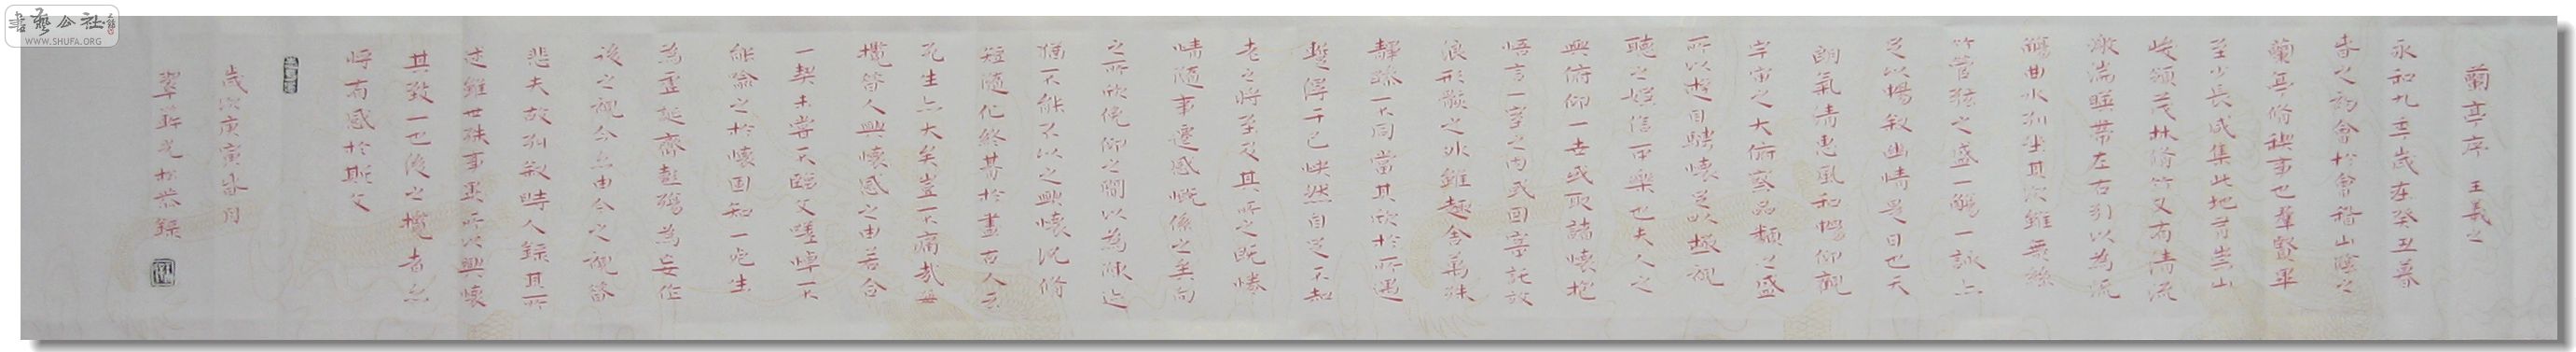 書藝公社
WWW.SHUFA.ORG
蘭亭序 王羲之
永和九年歲在癸丑暮
春之初會於會稽山陰之
蘭亭脩稧事也羣賢畢
至少長咸集此地有崇山
峻領茂林脩竹又有清流
激湍暎帶左右引以為流
觴曲水列坐其次雖無絲
竹管弦之盛一觴一詠亦
足以暢叙幽情是日也天
朗氣清惠風和暢仰觀
宇宙之大俯察品類之盛
所以遊目騁懷足以極視
聽之娛信可樂也夫人之
與俯仰一世或取諸懷抱
悟言一室之內或因寄所託放
浪形骸之外雖趣舍萬殊
靜躁不同當其欣於所遇
蹔得于己怏然自足不知
老之將至及其所之既惓
情隨事遷感慨係之矣向
之所欣俛仰之間以為陳迹
猶不能不以之興懷況脩
短隨化終期於盡古人云
死生亦大矣豈不痛哉每
攬昔人興感之由若合
一契未嘗不臨文嗟悼不
能喻之於懷固知一死生
為虛誕齊彭殤為妄作
後之視今亦由今之視昔
悲夫故列叙時人錄其所
述雖世殊事異所以興懷
其致一也後之攬者亦
將有感於斯文
歲次庚寅
恭錄